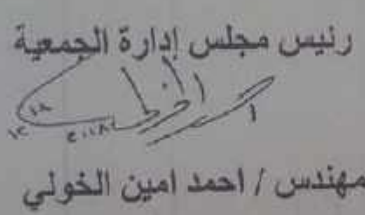 رئيس مجلس إدارة الجمعية
مهندس / احمد امين الخولي